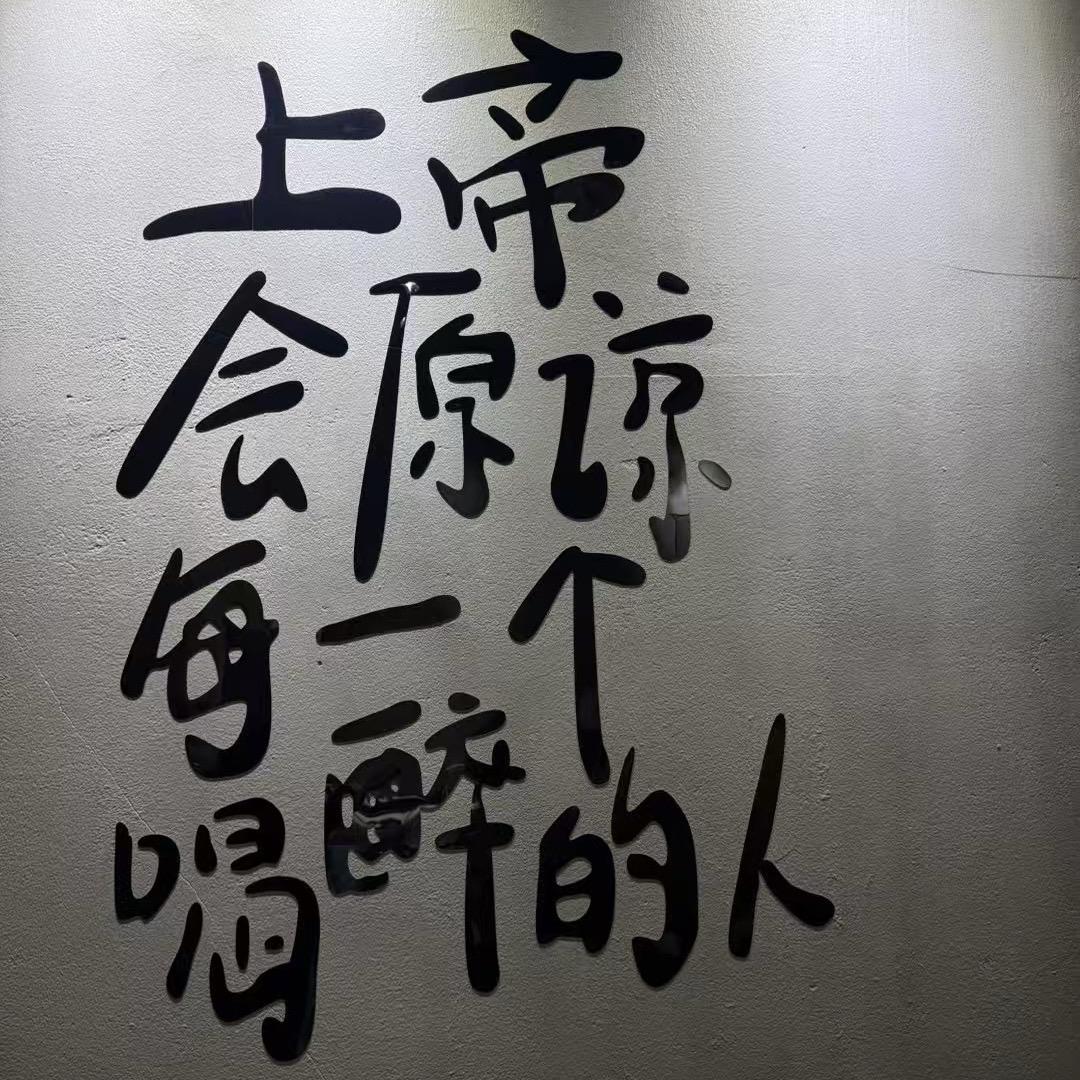 上帝
会原谅
每一个
喝醉的人